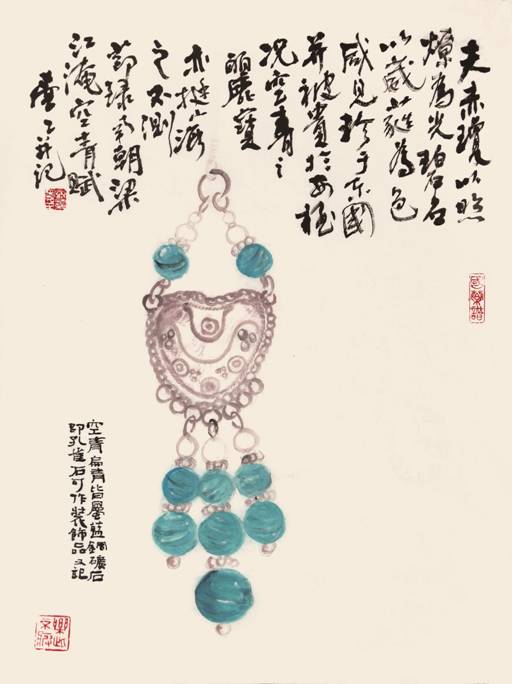 夫赤瓊以照
燎為光碧石
以葳蕤為色
咸見珍于東國
并被貴於西極
況空青之
麗寶
亦挺海
之不測
節錄南朝梁
江淹空青賦
并記
空青扁青皆屬藍銅礦石
即孔雀石可作裝飾品又記